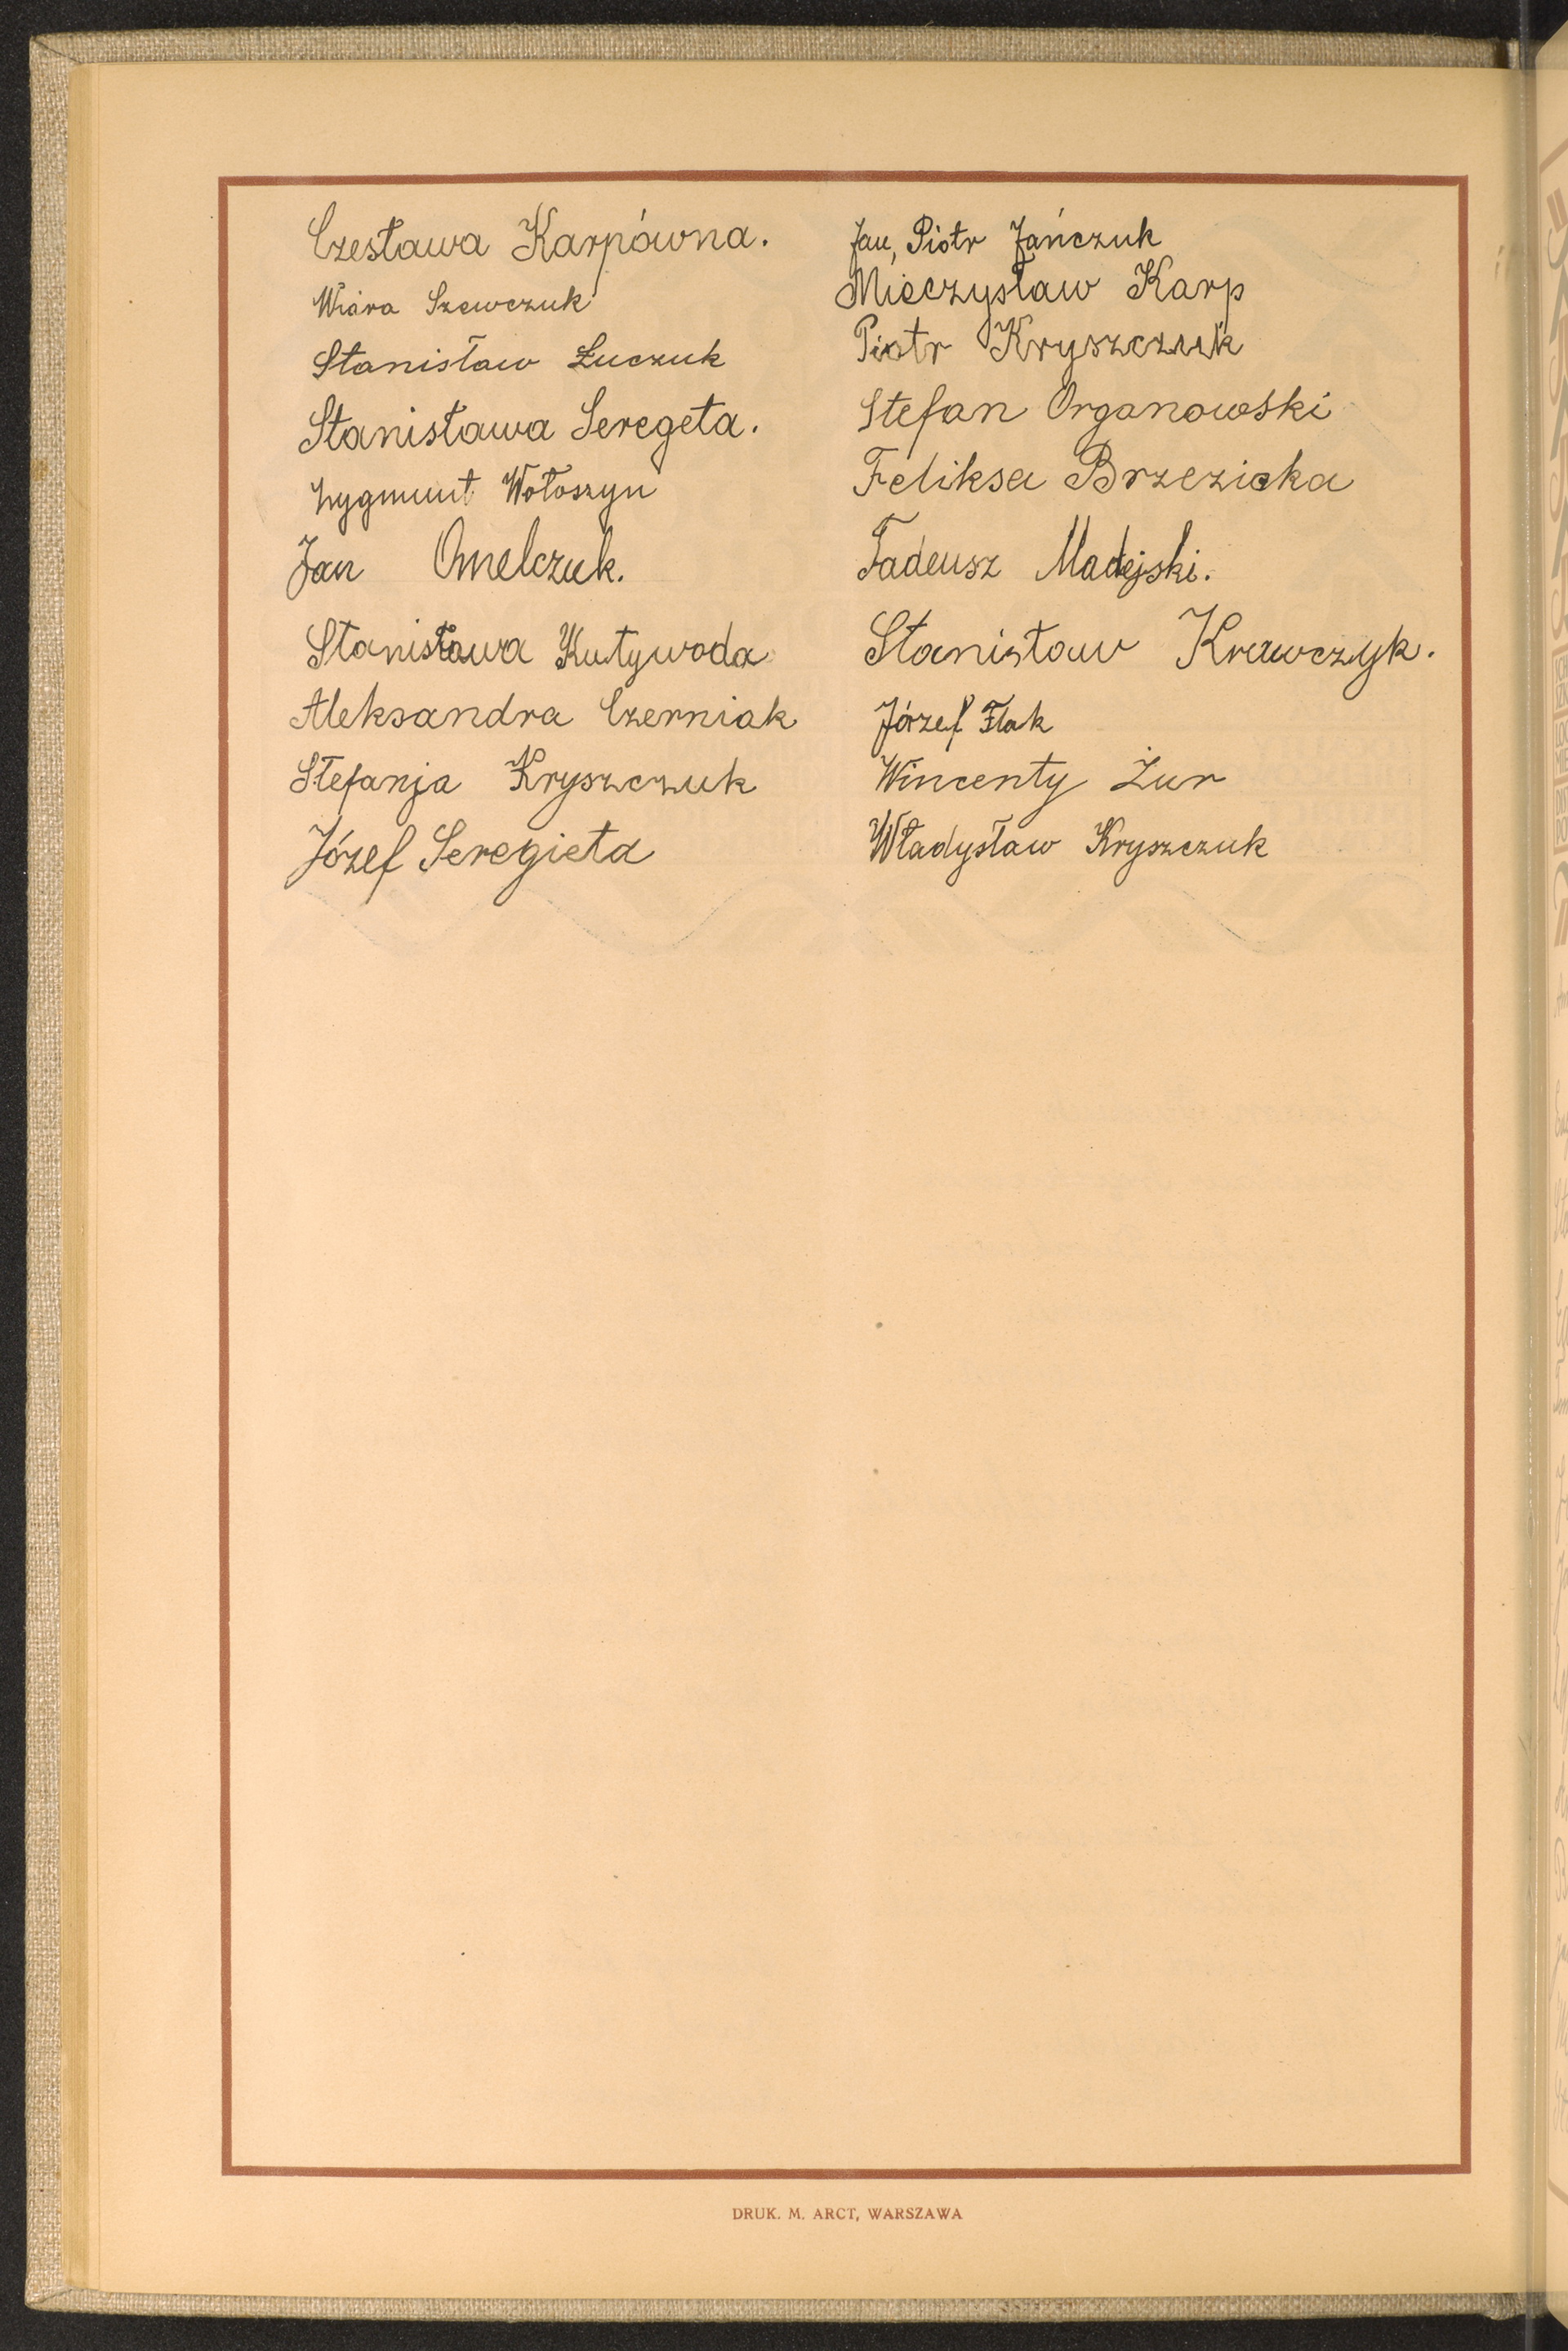 Czesława Karpówna.
Wiara Szewczuk
Stanisław Łuczuk
Stanisława Seregeta.
Zygmunt Wołoszyn
Jan Omelczuk.
Stanisława Kutywoda
Aleksandra Czerniak
Stefanja Kryszczuk
Józef Seregieta
Jan, Piotr Jańczuk
Mieczysław Karp
Piotr Kryszczuk
Stefan Organowski
Feliksa Brzezicka
Tadeusz Madejski.
Stanisław Krawczyk.
Józef Flak
Wincenty Żur
Władysław Kryszczuk
DRUK. M. ARCT, WARSZAWA